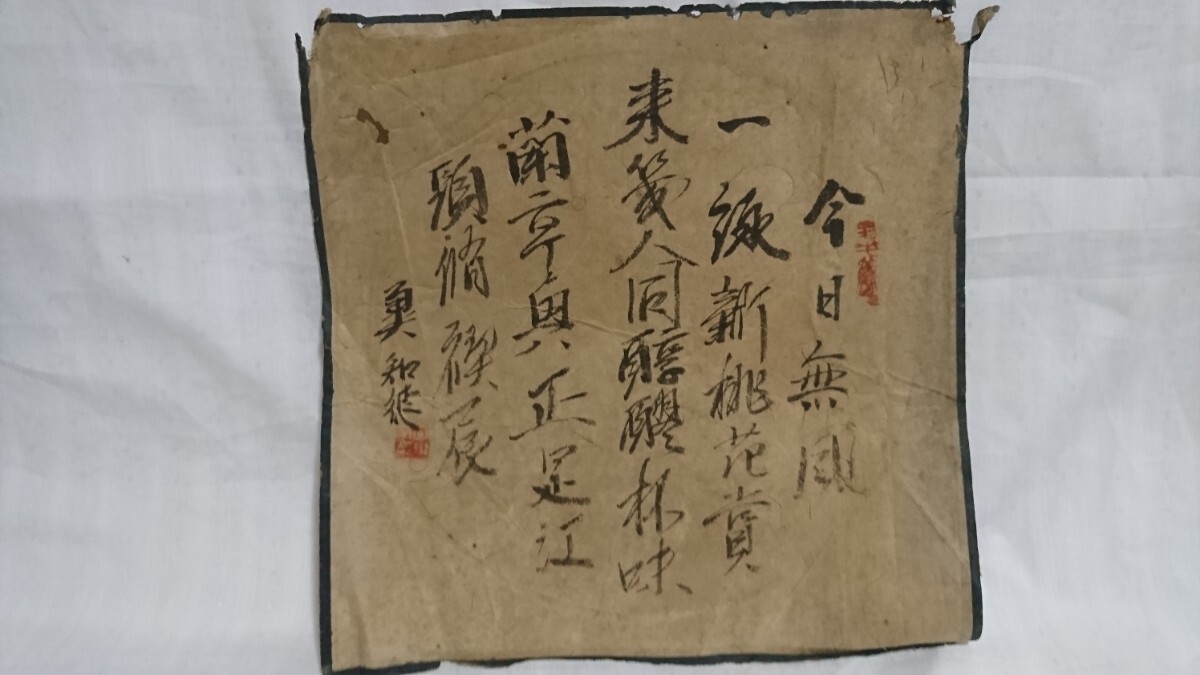 今日無風
一派新桃花賞
来箋人同醇醴杯味
蘭亭興正是江
頭脩禊辰